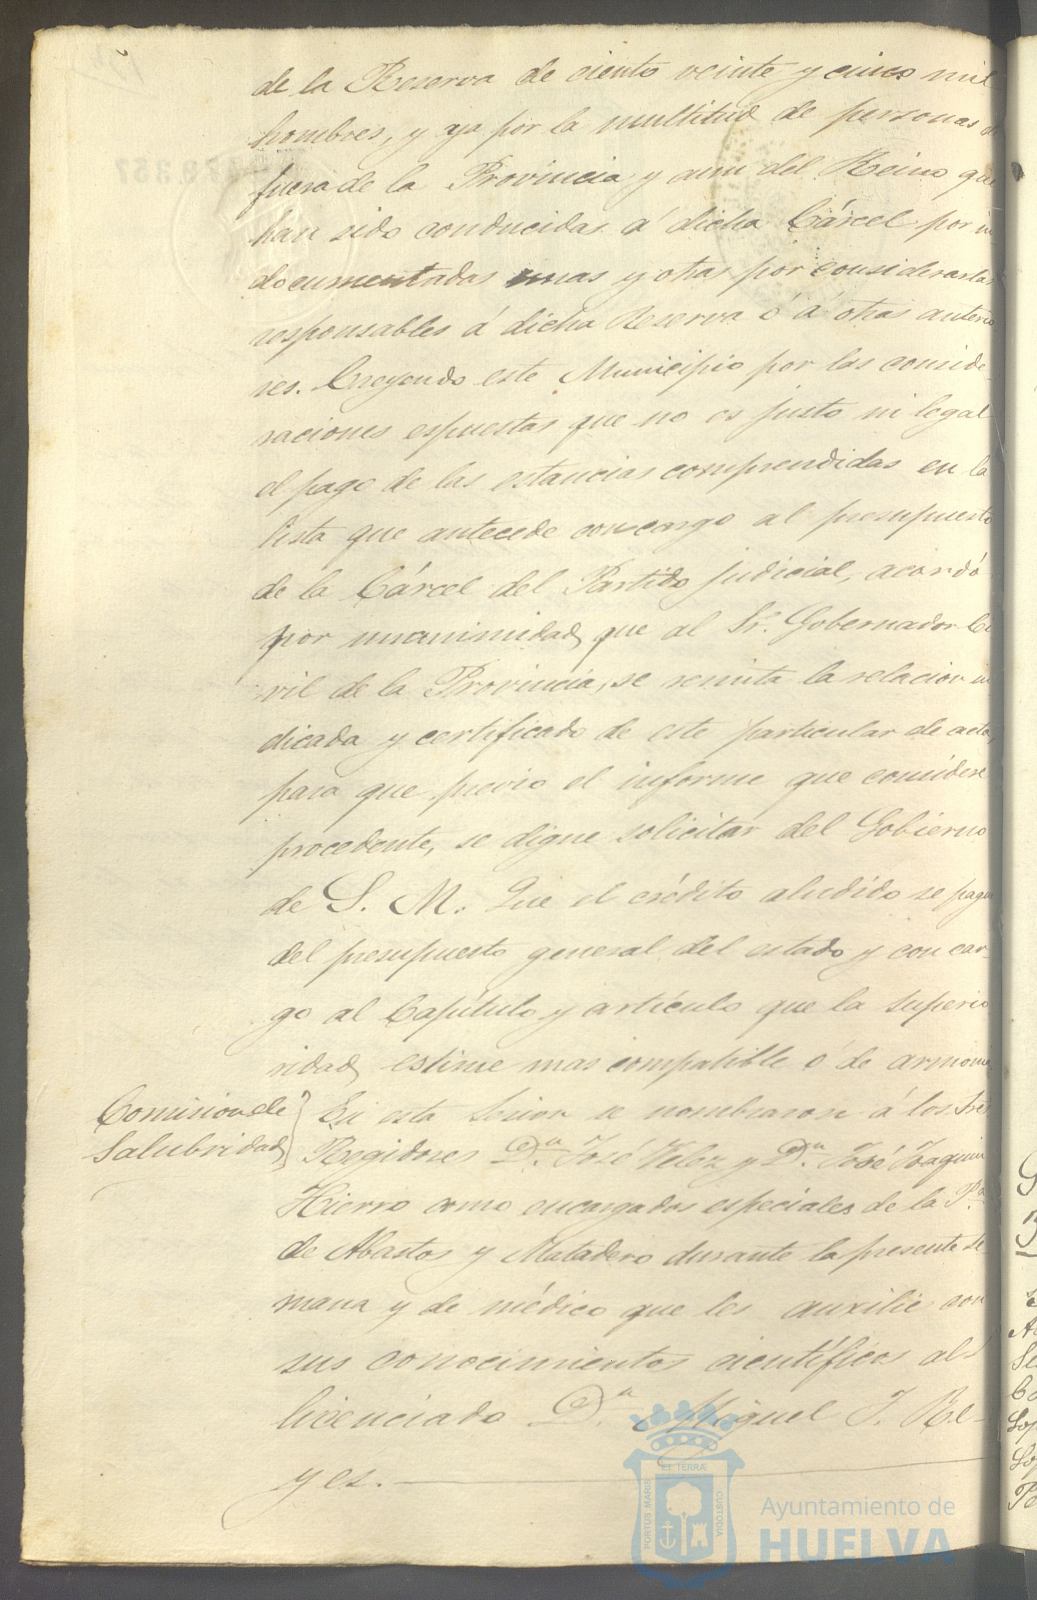 de la Reserva de ciento veinte y cinco mil
hombres, y ya por la multitud de personas de
fuera de la Provincia y aun del Reino que
han sido conducidas á dicha Cárcel por in
documentadas unas y otras por considerarlas
responsables á dicha Reserva ó á otras anterio
res. Creyendo este Municipio por las conside-
raciones espuestas que no es justo ni legal
el pago de las estancias comprendidas en la
lista que antecede con cargo al presupuesto
de la Cárcel del Partido judicial, acordó
por unanimidad que al Sr. Gobernador Ci
vil de la Provincia, se remita la relacion in
dicada y certificado de este particular de acta,
para que previo el informe que considere
procedente, se digne solicitar del Gobierno
de S. M. Que el crédito aludido se pague
del presupuesto general del estado y con car-
go al Capítulo y artículo que la superio
ridad estime mas compatible ó de armonia
Comision de
Salubridad
En esta Sesion se nombraron á los Sres
Regidores Dn. José Velez y Dn. José Joaquin
Hierro como encargados especiales de la Pza
de Abastos y Matadero durante la presente se
mana y de médico que les auxilie con
sus conocimientos científicos al
licenciado Dn. Miguel J. Re-
yes.
PORTUS MARIS
ET TERRÆ
CUSTODIA
Ayuntamiento de
HUELVA